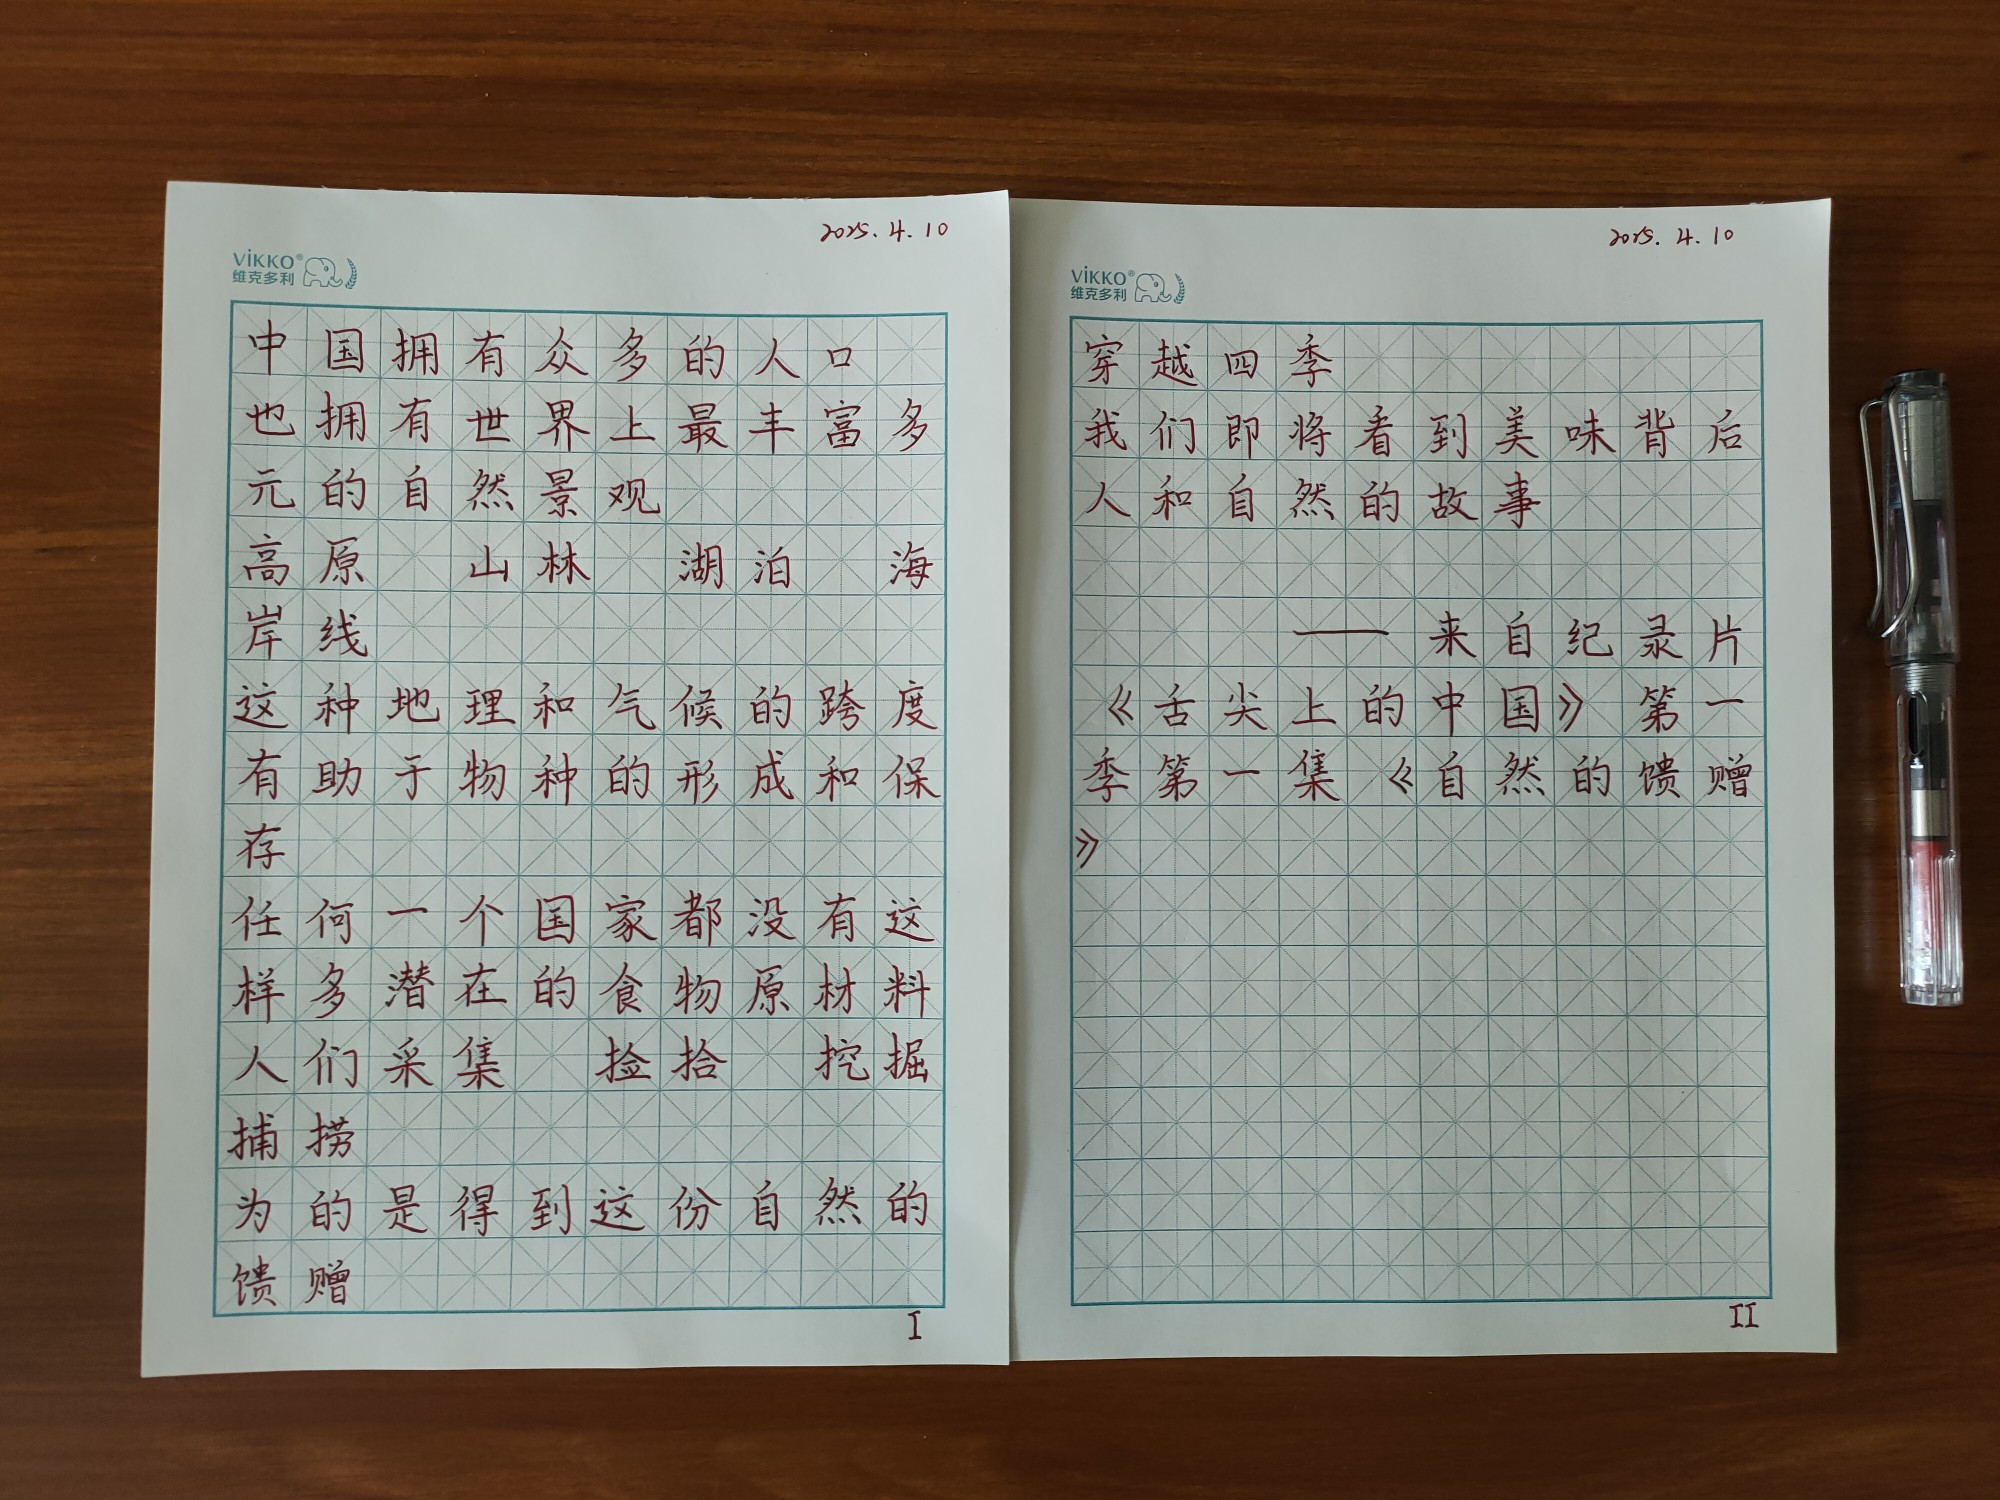 2025.4.10
VIKKO®
维克多利
中国拥有众多的人口
也拥有世界上最丰富多
元的自然景观
高原 山林 湖泊 海
岸线
这种地理和气候的跨度
有助于物种的形成和保
存
任何一个国家都没有这
样多潜在的食物原材料
人们采集 捡拾 挖掘
捕捞
为的是得到这份自然的
馈赠
I
2025.4.10
VIKKO®
维克多利
穿越四季
我们即将看到美味背后
人和自然的故事
——来自纪录片
《舌尖上的中国》第一
季第一集《自然的馈赠
》
II